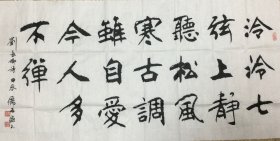 泠泠七
弦上静
聽松風
寒古調
雖自愛
今人多
不弹
劉長卿诗